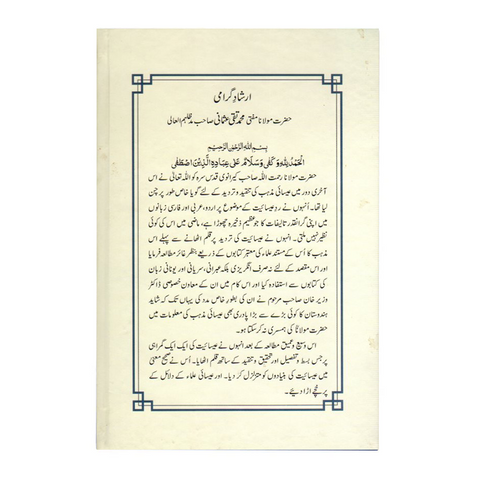 ارشادِ گرامی
حضرت مولانا مفتی محمد تقی عثمانی صاحب مدظلہم العالی
بِسْمِ اللهِ الرَّحْمٰنِ الرَّحِيْمِ
اَلْحَمْدُ لِلّٰهِ وَكَفٰى وَسَلَامٌ عَلٰى عِبَادِهِ الَّذِيْنَ اصْطَفٰى
حضرت مولانا رحمت اللہ صاحب کیرانوی قدس سرہ کو اللہ تعالیٰ نے اس
آخری دور میں عیسائی مذہب کی تنقید و تردید کے لئے گویا خاص طور پر چن
لیا تھا۔ انہوں نے ردِ عیسائیت کے موضوع پر اردو، عربی اور فارسی زبانوں
میں اپنی گرانقدر تالیفات کا جو عظیم ذخیرہ چھوڑا ہے، ماضی میں اس کی کوئی
نظیر نہیں ملتی۔ انہوں نے عیسائیت کی تردید پر قلم اٹھانے سے پہلے اس
مذہب کا اُس کے مستند علماء کی معتبر کتابوں کے ذریعے بنظرِ غائر مطالعہ فرمایا
اور اس مقصد کے لئے نہ صرف انگریزی بلکہ عبرانی، سریانی اور یونانی زبان
کی کتابوں سے استفادہ کیا اور اس کام میں ان کے معاون خصوصی ڈاکٹر
وزیر خان صاحب مرحوم نے ان کی بطور خاص مدد کی یہاں تک کہ شاید
ہندوستان کا کوئی بڑے سے بڑا پادری بھی عیسائی مذہب کی معلومات میں
حضرت مولاناؒ کی ہمسری نہ کر سکتا ہو۔
اس وسیع و عمیق مطالعہ کے بعد انہوں نے عیسائیت کی ایک ایک گمراہی
پر جس بسط و تفصیل اور تحقیق و تنقید کے ساتھ قلم اٹھایا۔ اُس نے صحیح معنی
میں عیسائیت کی بنیادوں کو متزلزل کر دیا۔ اور عیسائی علماء کے دلائل کے
پرخچے اڑا دیئے۔